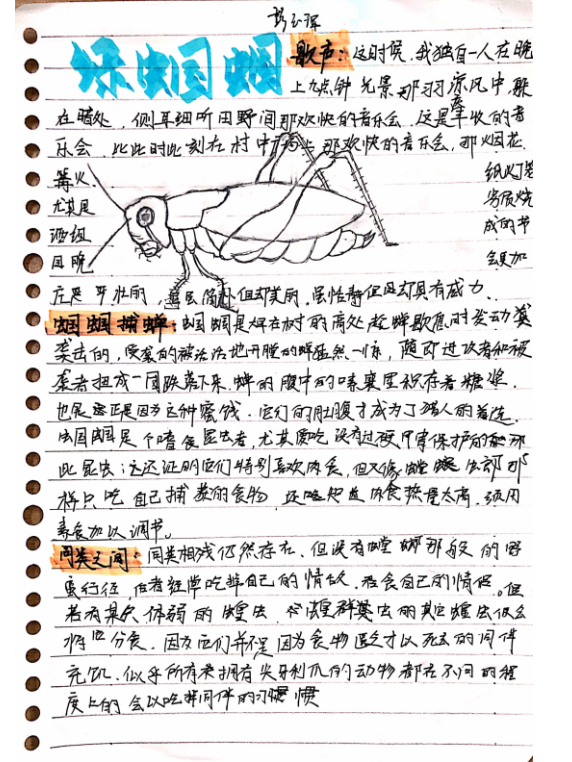 绿蝈蝈
歌声：这时候，我独自一人在晚
上九点钟光景那习习凉风中躲
在暗处，侧耳细听田野间那欢快的音乐会，这是丰收的音
乐会，比此时此刻在村中 那欢快的音乐会，那烟花、
篝火、 纸灯笼
尤其是
酒组
成的节
田晚 会更加
庄严 壮丽的，虽 简朴但却美丽，虽恬静但却具有威力。
蝈蝈捕蝉：蝈蝈是 在树的高处趁蝉歇息时发动袭
袭击的，受袭的被活活地开膛的蝉猛然一惊，随即进攻者和被
袭者扭成一团跌落下来。蝉的腹中的嗉囊里积存着糖浆，
也 正是因为这种蜜饯，它们的肚腹才成为了强人的首选。
蝈蝈是个嗜食昆虫者，尤其爱吃没有过硬甲胄保护的 那
些昆虫；这还证明它们特别喜欢肉食，但又不像螳螂 那
样只吃自己捕获的食物， 肉食热度太高，须用
素食加以调节。
同类之间：同类相残仍然存在，但没有螳螂那般的野
蛮行径，后者经常吃掉自己的情敌，吞食自己的情侣。但
若有某只体弱的蝗虫， 的其它蝗虫便会
将它分食。因为它们并不是因为食物 才以死去的同伴
充饥。似乎所有拥有尖牙利爪的动物都在不同的程
度上的会以吃掉同伴的习惯